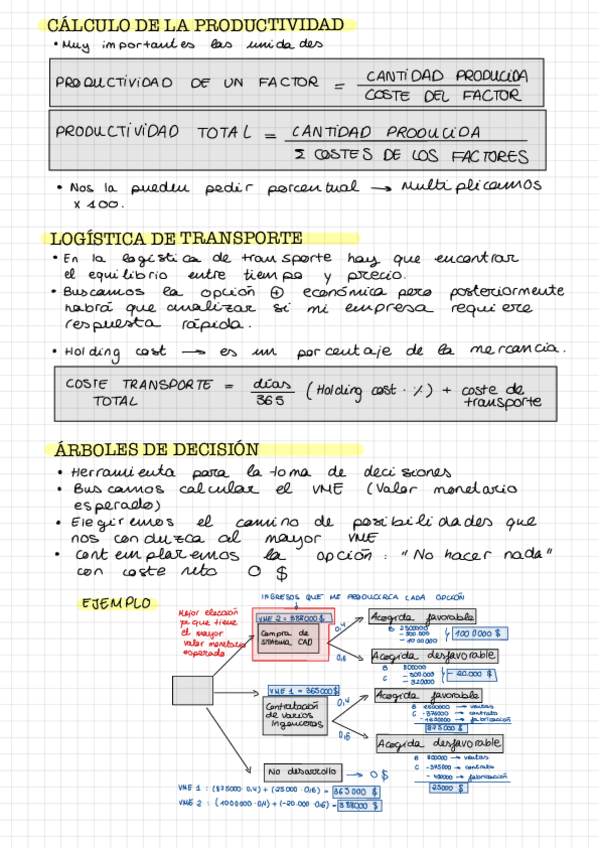 CÁLCULO DE LA PRODUCTIVIDAD
• Muy importantes las unidades
PRODUCTIVIDAD DE UN FACTOR = CANTIDAD PRODUCIDA
COSTE DEL FACTOR
PRODUCTIVIDAD TOTAL = CANTIDAD PRODUCIDA
Σ COSTES DE LOS FACTORES
• Nos la pueden pedir porcentual → Multiplicamos
x 100.
LOGÍSTICA DE TRANSPORTE
• En la logística de transporte hay que encontrar
el equilibrio entre tiempo y precio.
• Buscamos la opción ⊕ económica pero posteriormente
habrá que analizar si mi empresa requiere
respuesta rápida.
• Holding cost → es un porcentaje de la mercancia.
COSTE TRANSPORTE TOTAL = días/365 (Holding cost · %) + coste de transporte
ÁRBOLES DE DECISIÓN
• Herramienta para la toma de decisiones
• Buscamos calcular el VME (Valor monetario
esperado)
• Elegiremos el camino de posibilidades que
nos conduzca al mayor VME
• contemplaremos la opción: "No hacer nada"
con coste neto 0 $
EJEMPLO
INGRESOS QUE ME PRODUCIRIA CADA OPCIÓN
Mejor elección
ya que tiene
el mayor
valor monetario
esperado
VME 2 = 388000 $
Compra de
sistema CAD
0,4
0,6
Acogida favorable
- 300.000
1000000 $
Acogida desfavorable
B 800000
C - 300.000
- 320000
- 20.000 $
VME 1 = 365000 $
Contratación
de varios
ingenieros
0,4
0,6
Acogida favorable
B 2500000 → ventas
C - 375000 → contrato
→ fabricación
875000 $
Acogida desfavorable
B 800000 → ventas
C - 375000 → contrato
- 400000 → fabricación
25000 $
No desarrollo → 0 $
VME 1 : (875000 · 0,4) + (25000 · 0,6) = 365000 $
VME 2 : (1000000 · 0,4) + (-20.000 · 0,6) = 388000 $